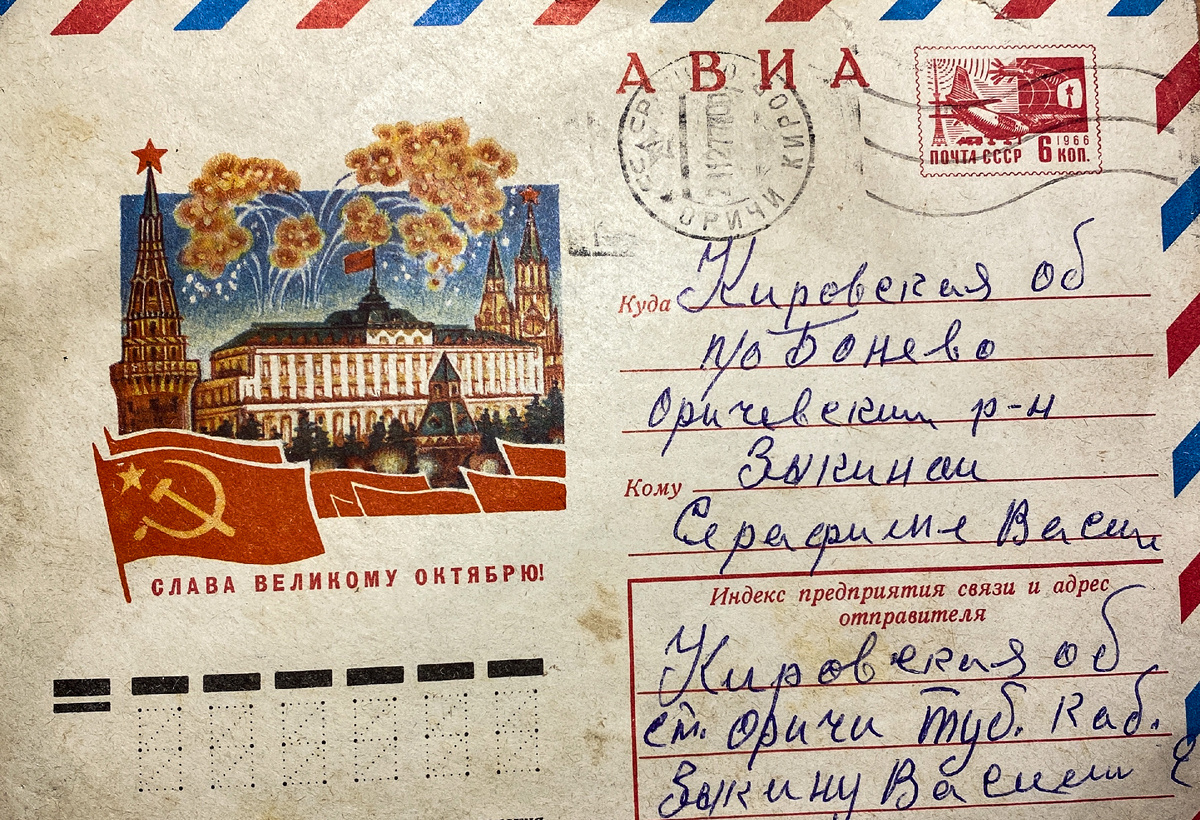 АВИА
ПОЧТА СССР 6 КОП.
1966
ОРИЧИ КИРО
Куда Кировская об
п/о Бонево
оричевский р-н
Кому Зыкиной
Серафиме Васи
СЛАВА ВЕЛИКОМУ ОКТЯБРЮ!
Индекс предприятия связи и адрес
отправителя
Кировская об
ст. Оричи туб. каб.
Зыкину Васили